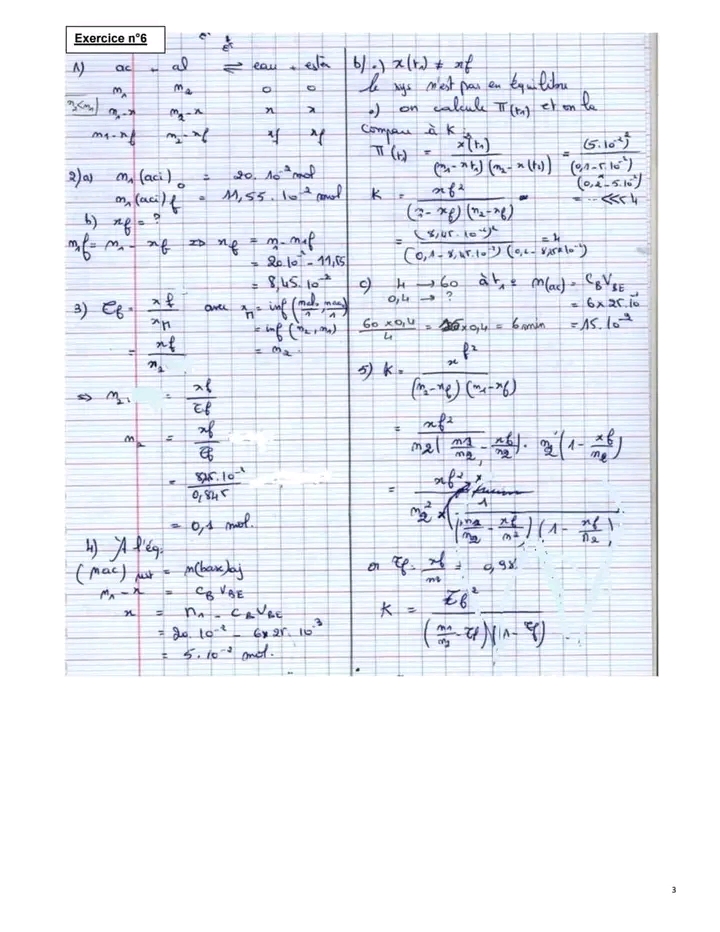 Exercice n°6
1) ac + al ⇌ eau + ester
n₁ n₂ 0 0
n₂<n₁ n₁-x n₂-x x x
n₁-xf n₂-xf xf xf
2) a) n₁(aci)₀ = 20. 10⁻² mol
n₁(aci)f = 11,55. 10⁻² mol
b) xf = ?
n₁f = n₁ - xf ⇒ xf = n₁ - n₁f
= 20.10⁻² - 11,55
= 8,45. 10⁻²
3) τf = xf/xM avec xM = inf (nal/1, nac/1)
= inf (n₂, n₁)
= xf/n₂ = n₂
⇒ n₂ = xf/τf
n₂ = xf/τf
= 8,45.10⁻²/0,845
= 0,1 mol.
4) A l'éq.
(nac) = n(base)aj
n₁ - x = CB VBE
x = n₁ - CB VBE
= 20. 10⁻² - 6x25. 10⁻³
= 5. 10⁻² mol.
b) .) x(t₁) ≠ xf
le sys n'est pas en équilibre
.) on calcule Π(t₁) et on la
compare à K
Π(t₁) = x²(t₁)/((n₁-xt₁)(n₂-x(t₁))) = (5.10⁻²)²/((0,1-5.10⁻²)(0,2-5.10⁻²))
= ... <<< 4
K = xf²/((n₁-xf)(n₂-xf))
= (8,45. 10⁻²)²/((0,1-8,45.10⁻²)(0,2-8,45x10⁻²)) = 4
c) 4 → 60 à t₁ : n(ac) = CB VBE
0,4 → ? = 6x25.10⁻³
60x0,4/4 = 15x0,4 = 6min = 15.10⁻²
5) K = xf²/((n₂-xf)(n₁-xf))
= xf²/(n₂(n₁/n₂ - xf/n₂). n₂(1 - xf/n₂))
= xf²/n₂² x 1/((n₁/n₂ - xf/n₂)(1 - xf/n₂))
or τf = xf/n₂ = 0,98
K = τf²/((n₁/n₂ - τf)(1 - τf))
3